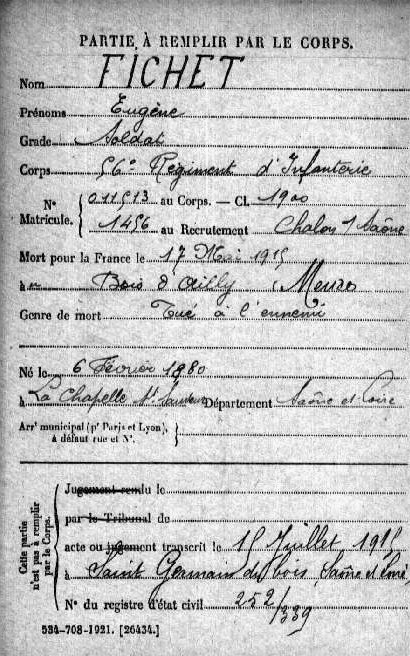 PARTIE À REMPLIR PAR LE CORPS.
Nom FICHET
Prénoms Eugène
Grade Soldat
Corps 56e Régiment d'Infanterie
N° Matricule. { 011513 au Corps. — Cl. 1900
1456 au Recrutement Chalon s/ Saône
Mort pour la France le 17 Mai 1915
à Bois d'Ailly (Meuse)
Genre de mort Tué à l'ennemi
Né le 6 Février 1880
à La Chapelle St Sauveur Département Saône et Loire
Arrt municipal (pr Paris et Lyon), à défaut rue et N°. }
Cette partie n'est pas à remplir par le Corps.
Jugement rendu le
par le Tribunal de
acte ou jugement transcrit le 15 Juillet 1915
à Saint Germain du bois (Saône et Loire)
N° du registre d'état civil 252/339
534-708-1921. [26434.]